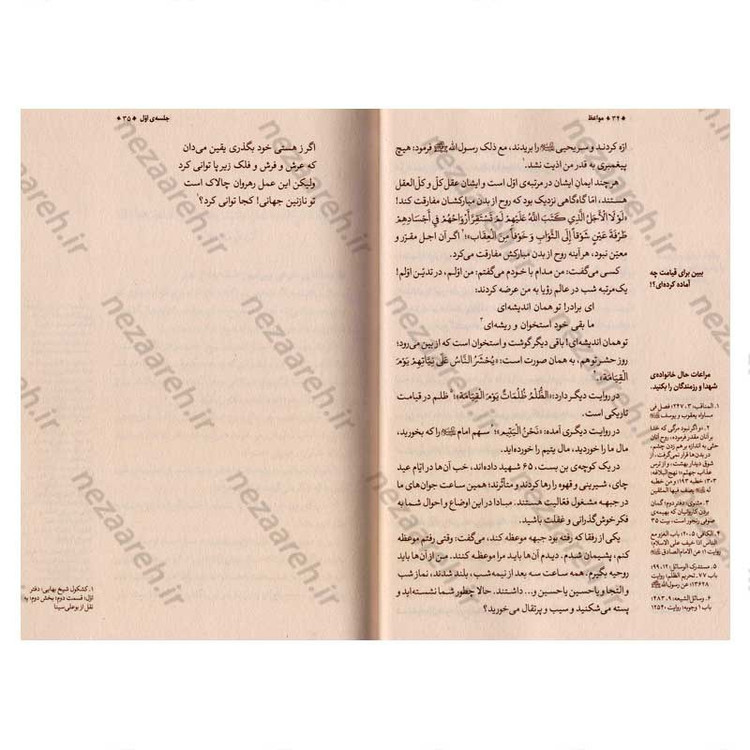 ♦ ۳۴ ♦ مواعظ
ازه کردند و سریحیی را بریدند، مع ذلک رسول الله فرمود: هیچ
پیغمبری به قدر من اذیت نشد.۱
هرچند ایمان ایشان در مرتبه‌ی اوّل است و ایشان عقل کلّ و کلّ العقل
هستند، امّا گاه‌گاهی نزدیک بود که روح از بدن مبارکشان مفارقت کند!
«لَوْ لَا الْأَجَلُ الَّذِي كَتَبَ اللَّهُ عَلَيْهِمْ لَمْ تَسْتَقِرَّ أَرْوَاحُهُمْ فِي أَجْسَادِهِمْ
طَرْفَةَ عَيْنٍ شَوْقاً إِلَى الثَّوَابِ وَ خَوْفاً مِنَ الْعِقَابِ»؛۲ اگر آن اجل مقرّر و
معیّن نبود، هرآینه روح از بدن مبارکش مفارقت می‌کرد.
کسی می‌گفت: من مدام با خودم می‌گفتم: من اوّلم، در تدیّن اوّلم!
یک مرتبه شب در عالم رؤیا به من عرضه کردند:
ای برادر! تو همان اندیشه‌ای
ما بقی خود استخوان و ریشه‌ای۳
تو همان اندیشه‌ای! باقی دیگر گوشت و استخوان است که از بین می‌رود؛
روز حشر تو هم، به همان صورت است: «يُحْشَرُ النَّاسُ عَلَى نِيَّاتِهِمْ يَوْمَ
الْقِيَامَةِ».۴
در روایت دیگر دارد: «الظُّلْمُ ظُلُمَاتٌ يَوْمَ الْقِيَامَةِ»؛۵ ظلم در قیامت
تاریکی است.
در روایت دیگری آمده: «نَحْنُ الْيَتِيمُ»؛۶ سهم امام را که بخورید،
مال ما را خوردید، مال یتیم را خورده‌اید.
در یک کوچه‌ی بن بست، ۶۵ شهید داده‌اند، خب آن‌ها در ایّام عید
چای، شیرینی و قهوه را رها کردند و متأثرند؛ همین ساعت جوان‌های ما
در جبهه مشغول فعالیت هستند. مبادا در این اوضاع و احوال شما به
فکر خوش‌گذرانی و غفلت باشید.
یکی از رفقا که رفته بود جبهه موعظه کند، می‌گفت: وقتی رفتم موعظه
کنم، پشیمان شدم. دیدم آن‌ها باید مرا موعظه کنند. من از آن‌ها باید
روحیه بگیرم. همه ساعت سه بعد از نیمه‌شب، بلند شدند، نماز شب
و التجا و یاحسین یاحسین و... داشتند. حالا چطور شما نشسته‌اید و
پسته می‌شکنید و سیب و پرتقال می‌خورید؟
ببین برای قیامت چه
آماده کرده‌ای؟!
مراعات حال خانواده‌ی
شهدا و رزمندگان را بکنید.
۱. المناقب؛ ۳، ۲۴۷؛ فصل فی
مساواه یعقوب و یوسف
۲. «و اگر نبود مرگی که خدا
بر آنان مقدر فرموده، روح آنان
حتی به اندازه بر هم زدن چشم،
در بدن‌ها قرار نمی‌گرفت، از
شوق دیدار بهشت، و از ترس
عذاب جهنم» نهج البلاغه؛
۳۰۳؛ خطبه ۱۹۳؛ و من خطبه
له یصف فیها المتقین
۳. مثنوی؛ دفتر دوم؛ گمان
بردن کاروانیان که بهیمه‌ی
صوفی رنجور است، بیت ۳۵
۴. الکافی؛ ۵، ۲۰؛ باب الغزو مع
الناس اذا خیف علی الاسلام؛
روایت ۱؛ عن الامام الصادق
۵. مستدرک الوسائل؛ ۱۲، ۹۹؛
باب ۷۷، تحریم الظلم؛ روایت
۱۳۶۲۸؛ عن رسول الله
۶. وسائل الشیعه؛ ۹، ۴۸۳؛
باب ۱ وجوبه؛ روایت ۱۲۵۴۰
جلسه‌ی اوّل ♦ ۳۵ ♦
اگر ز هستی خود بگذری یقین می‌دان
که عرش و فرش و فلک زیر پا توانی کرد
ولیکن این عمل رهروان چالاک است
تو نازنین جهانی! کجا توانی کرد؟۱
۱. کشکول شیخ بهایی؛ دفتر
اوّل؛ قسمت دوم؛ بخش دوم؛ به
نقل از بوعلی سینا
nezaareh.ir